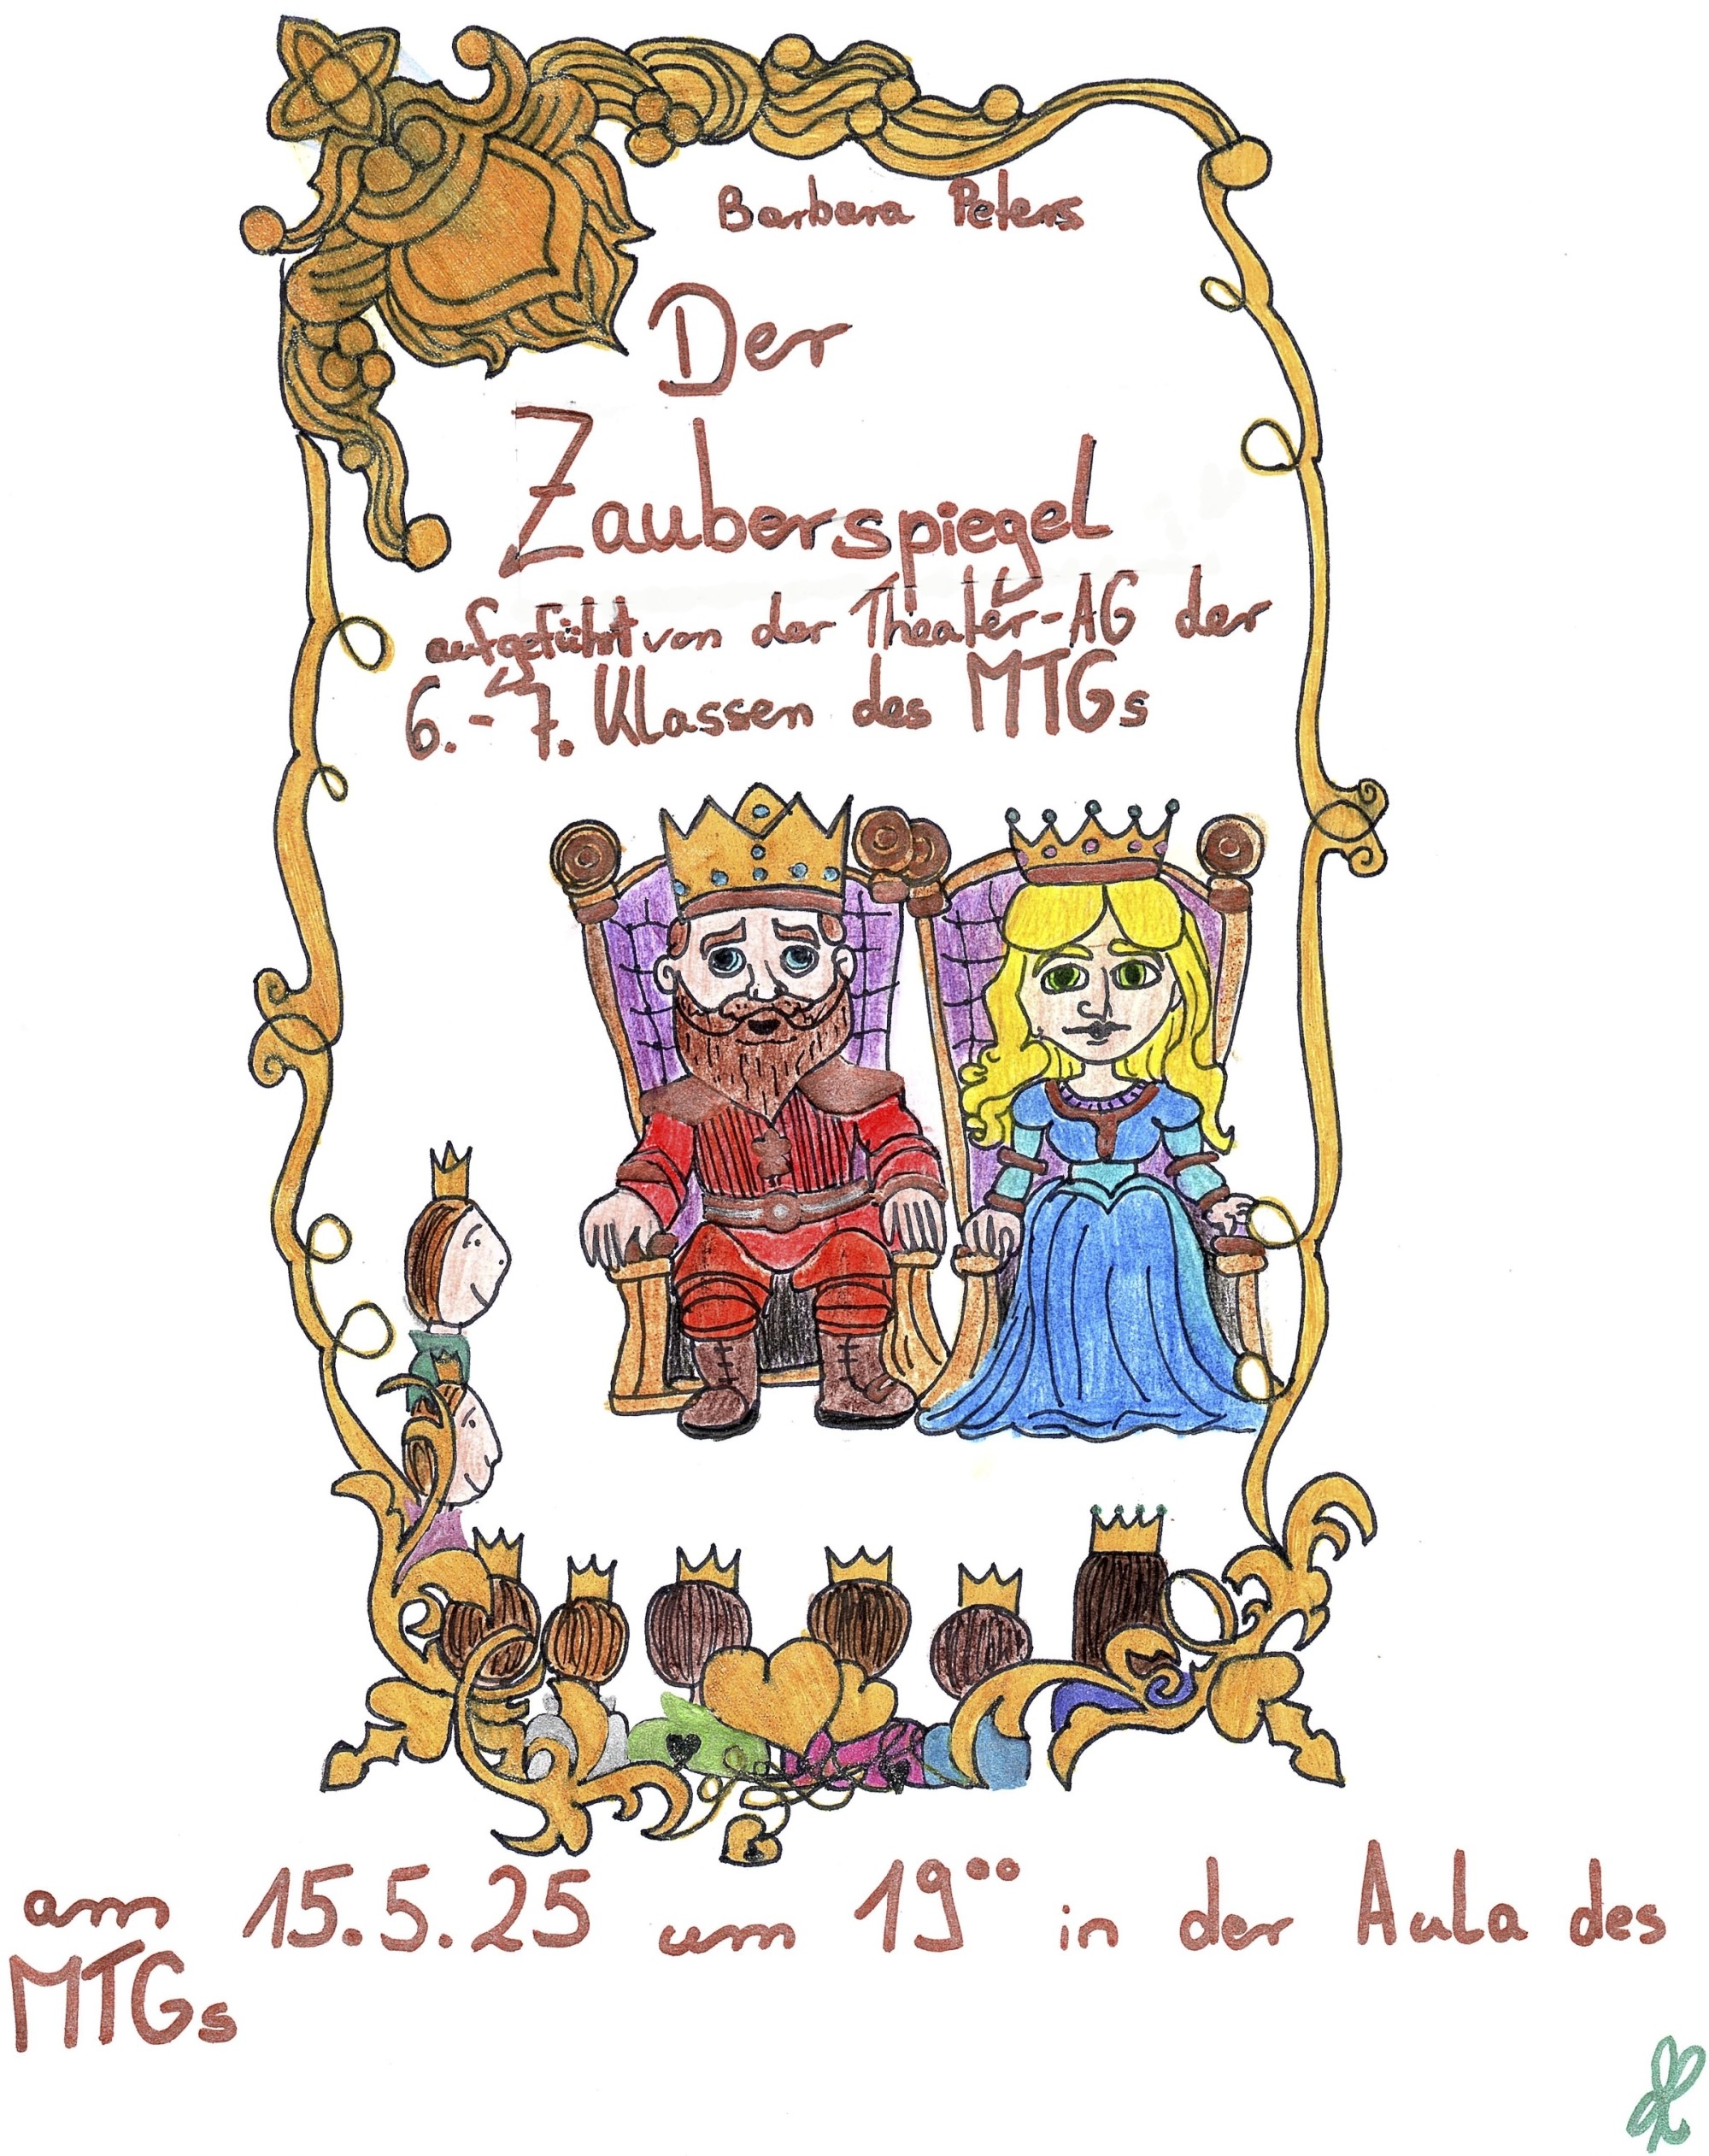 Barbara Peters
Der
Zauberspiegel
aufgeführt von der Theater-AG der
6.-7. Klassen des MTGs
am 15.5.25 um 19°° in der Aula des
MTGs